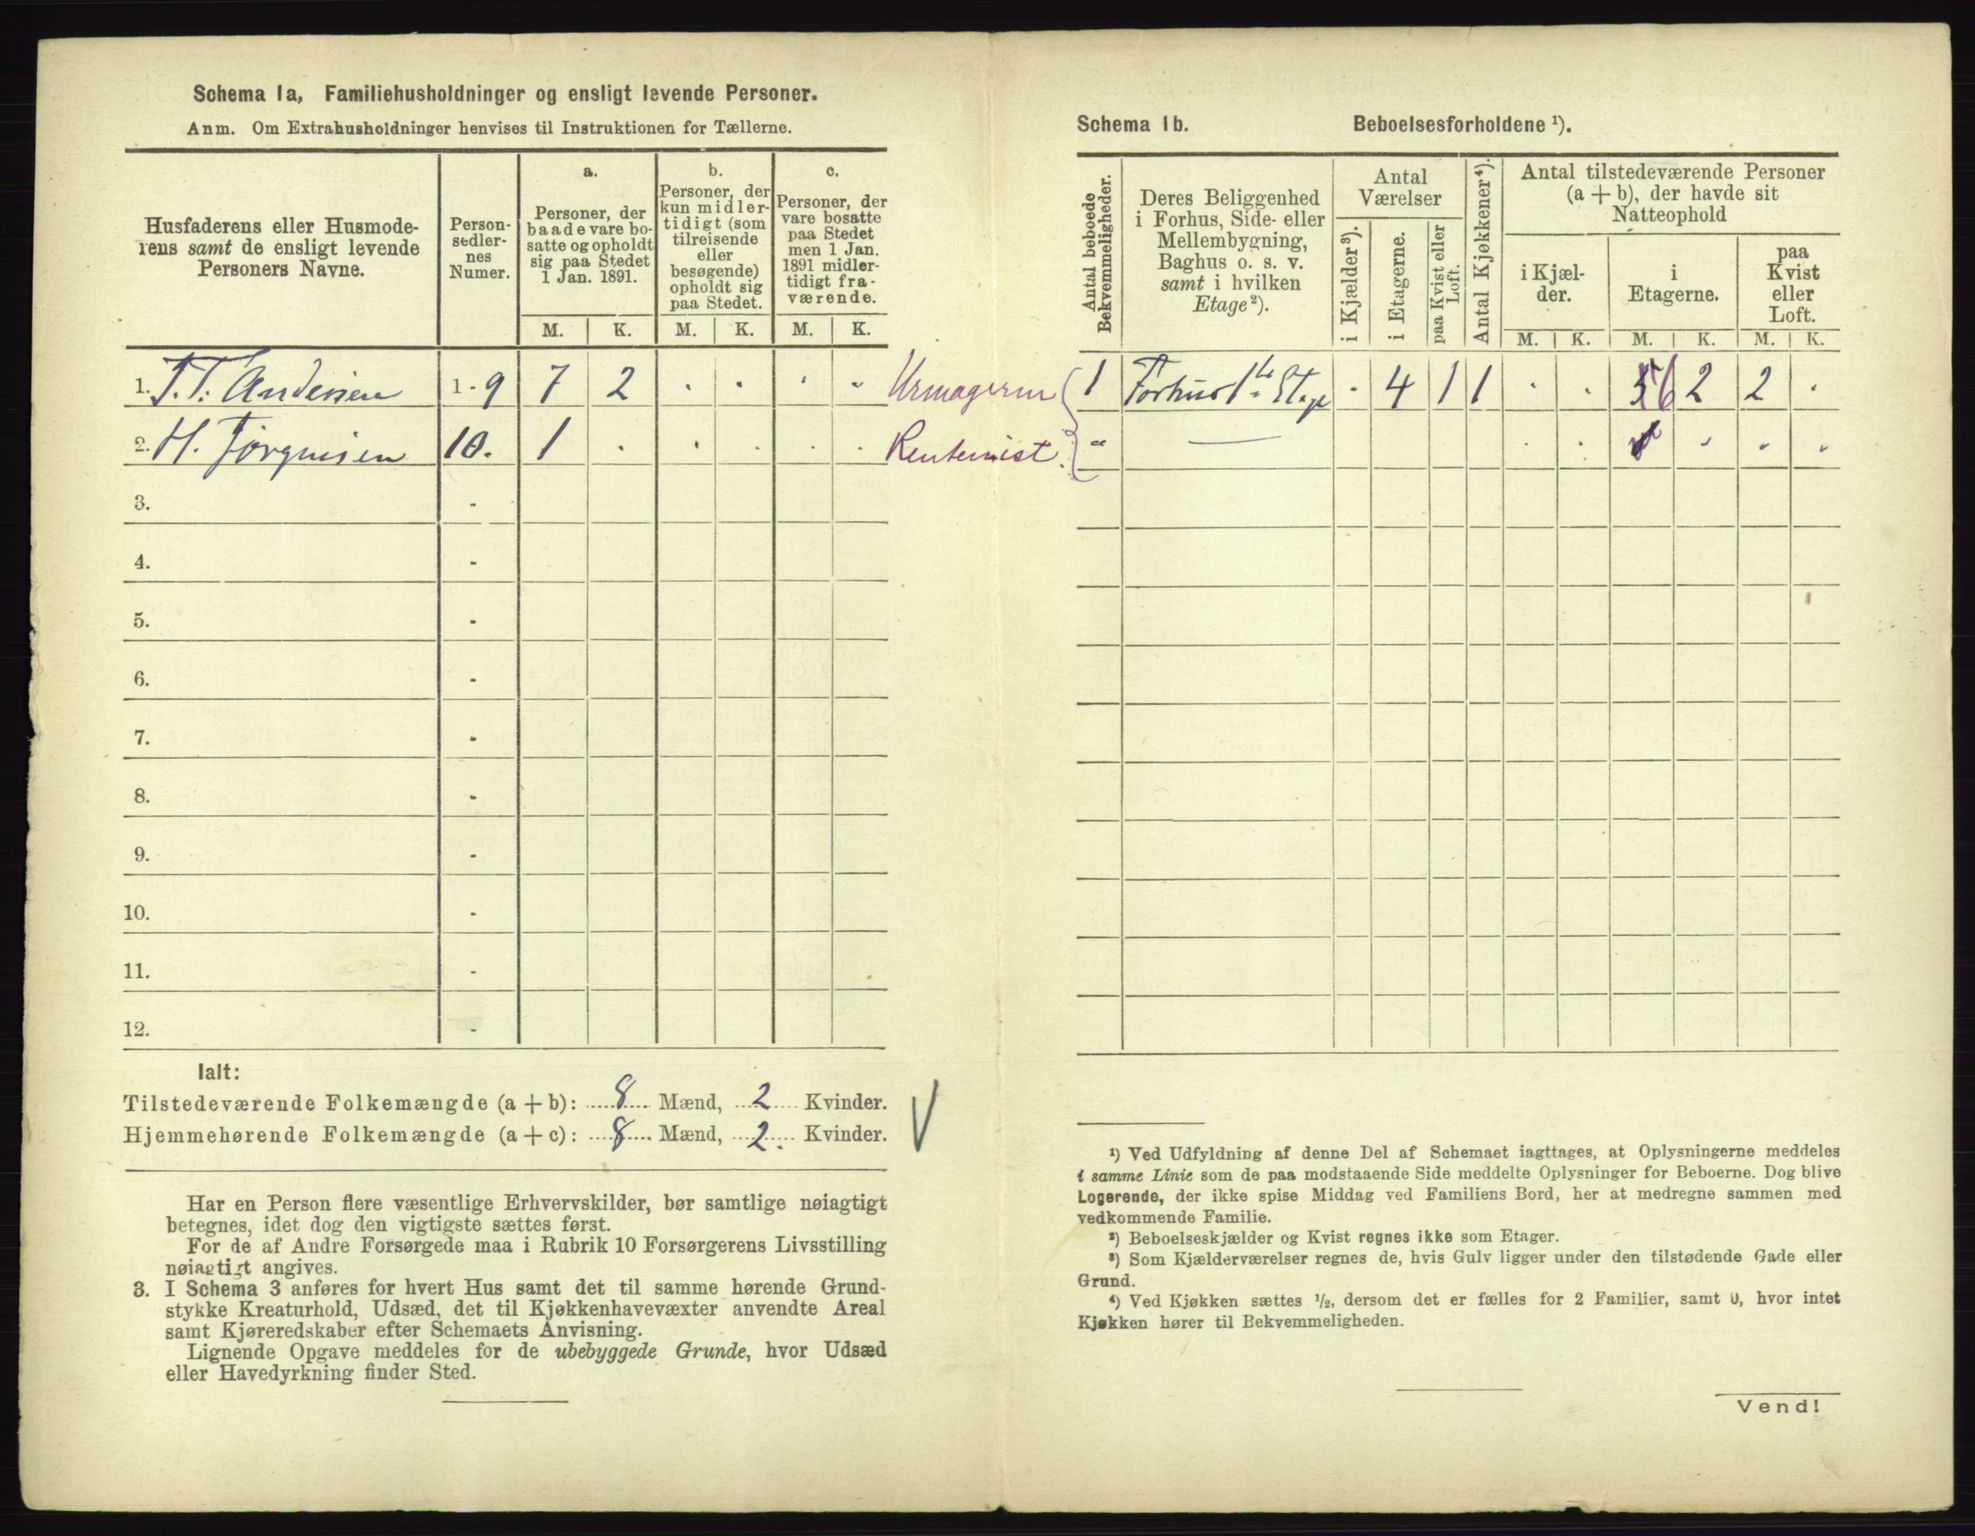 Schema 1a, Familiehusholdninger og ensligt levende Personer.
Anm. Om Extrahusholdninger henvises til Instruktionen for Tællerne.
Husfaderens eller Husmode-
rens samt de ensligt levende
Personers Navne.
Person-
sedler-
nes
Numer.
a.
Personer, der
baade vare bo-
satte og opholdt
sig paa Stedet
1 Jan. 1891.
b.
Personer, der
kun midler-
tidigt (som
tilreisende
eller
besøgende)
opholdt sig
paa Stedet.
c.
Personer, der
vare bosatte
paa Stedet
men 1 Jan.
1891 midler-
tidigt fra-
værende.
M. K. M. K. M. K.
1. T. T. Andersen 1 - 9 7 2 . . . . Urmagerm
2. H. Jørgensen 10. 1 . . . . . Rentenist.
3. -
4. -
5. -
6. -
7. -
8. -
9. -
10. -
11. -
12. -
Ialt:
Tilstedeværende Folkemængde (a + b): 8 Mænd, 2 Kvinder.
Hjemmehørende Folkemængde (a + c): 8 Mænd, 2. Kvinder.
Har en Person flere væsentlige Erhvervskilder, bør samtlige nøiagtigt
betegnes, idet dog den vigtigste sættes først.
For de af Andre Forsørgede maa i Rubrik 10 Forsørgerens Livsstilling
nøiagtigt angives.
3. I Schema 3 anføres for hvert Hus samt det til samme hørende Grund-
stykke Kreaturhold, Udsæd, det til Kjøkkenhavevæxter anvendte Areal
samt Kjøreredskaber efter Schemaets Anvisning.
Lignende Opgave meddeles for de ubebyggede Grunde, hvor Udsæd
eller Havedyrkning finder Sted.
Schema 1b. Beboelsesforholdene ¹).
Antal beboede
Bekvemmeligheder.
Deres Beliggenhed
i Forhus, Side- eller
Mellembygning,
Baghus o. s. v.
samt i hvilken
Etage²).
Antal
Værelser
i Kjælder³).
i Etagerne.
paa Kvist eller
Loft.
Antal Kjøkkener⁴).
Antal tilstedeværende Personer
(a + b), der havde sit
Natteophold
i Kjæl-
der.
i
Etagerne.
paa
Kvist
eller
Loft.
M. K. M. K. M. K.
1 Forhus 1ste Etage - 4 1 1 . . 5 6 2 2 .
" — . . 1 " " " "
¹) Ved Udfyldning af denne Del af Schemaet iagttages, at Oplysningerne meddeles
i samme Linie som de paa modstaaende Side meddelte Oplysninger for Beboerne. Dog blive
Logerende, der ikke spise Middag ved Familiens Bord, her at medregne sammen med
vedkommende Familie.
²) Beboelseskjælder og Kvist regnes ikke som Etager.
³) Som Kjælderværelser regnes de, hvis Gulv ligger under den tilstødende Gade eller
Grund.
⁴) Ved Kjøkken sættes ½, dersom det er fælles for 2 Familier, samt 0, hvor intet
Kjøkken hører til Bekvemmeligheden.
Vend!